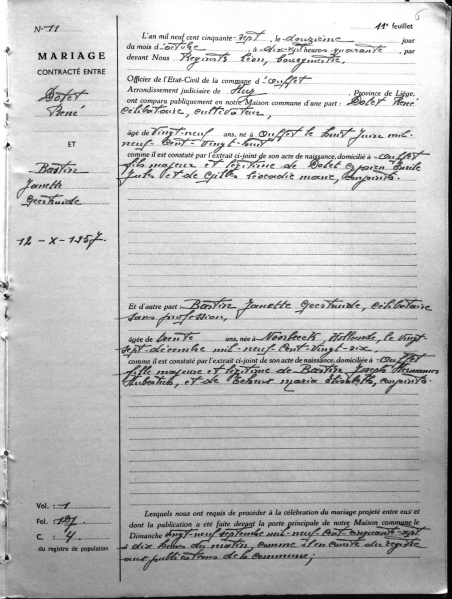 6
11e feuillet
N° 11
MARIAGE
CONTRACTÉ ENTRE
Dolet
René
ET
Bastin
Janette
Geertruide
12 - X - 1957.
Vol. : 1
Fol. : 197
C. : 4.
du registre de population
L'an mil neuf cent cinquante-sept, le douzième jour
du mois d'octobre à dix-sept heures quarante, par
devant Nous Reginster Léon, bourgmestre,
Officier de l'Etat-Civil de la commune d'Ouffet
Arrondissement judiciaire de Huy, Province de Liège,
ont comparu publiquement en notre Maison commune d'une part : Dolet René
célibataire, cultivateur,
âgé de vingt-neuf ans, né à Ouffet le huit juin mil-
neuf-cent-vingt-huit
comme il est constaté par l'extrait ci-joint de son acte de naissance, domicilié à Ouffet
fils majeur et légitime de Dolet Emile
Jules et de Léocadie Marie, conjoints.
Et d'autre part : Bastin Janette Geertruide, célibataire
sans profession,
âgée de trente ans, née à Noorbeek, Hollande, le vingt
sept décembre mil-neuf-cent-vingt-six,
comme il est constaté par l'extrait ci-joint de son acte de naissance, domiciliée à Ouffet
fille majeure et légitime de Bastin Joseph Hermanus
Hubertus, et de Maria Elisabeth, conjoints.
Lesquels nous ont requis de procéder à la célébration du mariage projeté entre eux et
dont la publication a été faite devant la porte principale de notre Maison commune le
Dimanche vingt-neuf septembre mil-neuf-cent-cinquante-sept
à dix heures du matin, comme il en conste du registre
aux publications de la commune;